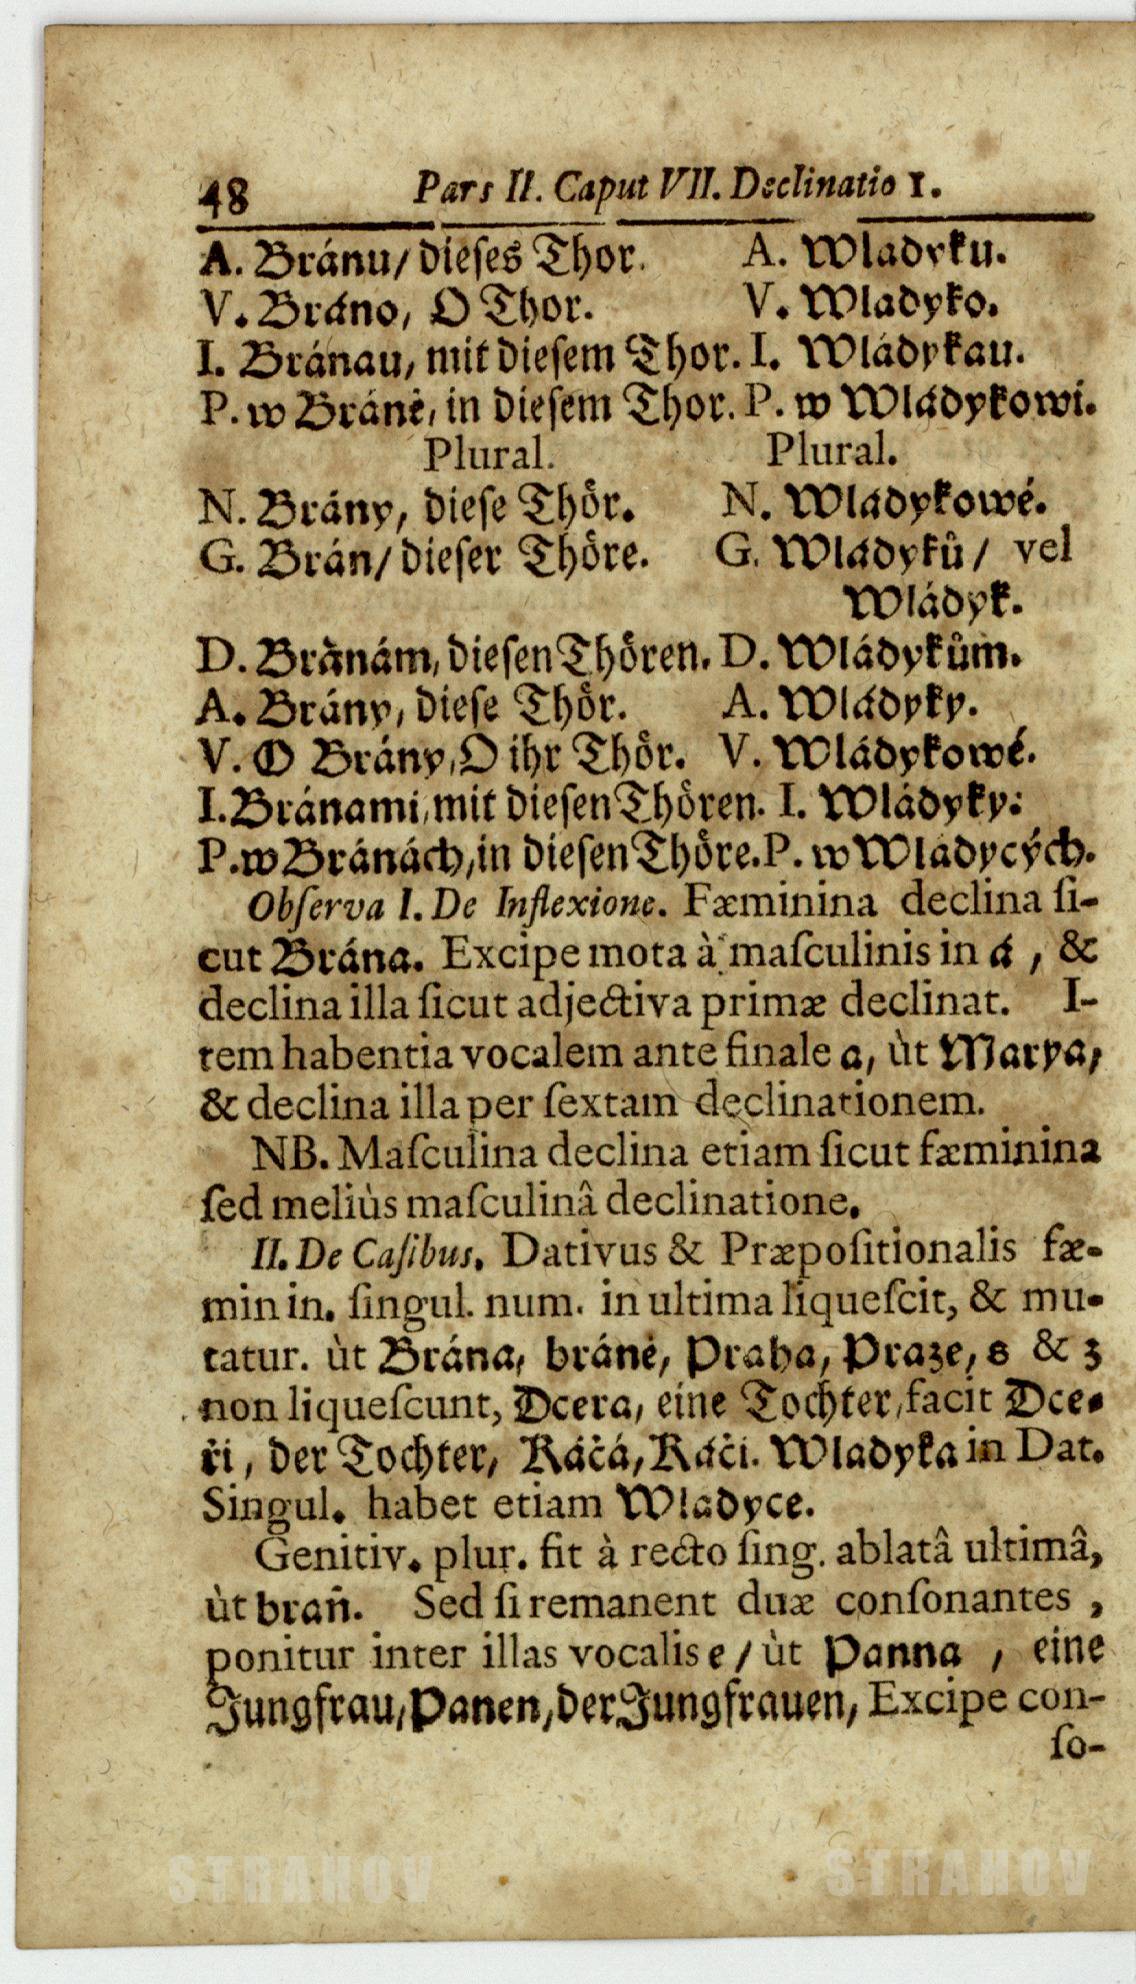 48 Pars II. Caput VII. Declinatio 1.
A. Bránu/ dieſes Thor. A. Wladyku.
V. Bráno, O Thor. V. Wladyko.
I. Bránau, mit dieſem Thor. I. Wládykau.
P. w Bráně, in dieſem Thor. P. w Wládykowi.
Plural. Plural.
N. Brány, dieſe Thoͤr. N. Wládykowé.
G. Brán/ dieſer Thoͤre. G. Wládyků/ vel
Wládyk.
D. Bránám, dieſen Thoͤren. D. Wládykům.
A. Brány, dieſe Thoͤr. A. Wládyky.
V. O Brány, O ihr Thoͤr. V. Wládykowé.
I. Bránami, mit dieſen Thoͤren. I. Wládyky:
P. w Bránách, in dieſen Thoͤre. P. w Wládycých.
Obſerva I. De Inflexione. Fæminina declina ſi-
cut Brána. Excipe mota à maſculinis in á, &
declina illa ſicut adjectiva primæ declinat. I-
tem habentia vocalem ante finale a, ùt Marya,
& declina illa per ſextam declinationem.
NB. Maſculina declina etiam ſicut fæminina
ſed meliùs maſculinâ declinatione.
II. De Caſibus. Dativus & Præpoſitionalis fæ-
minin. ſingul. num. in ultima liqueſcit, & mu-
tatur. ùt Brána, bráně, Praha, Praze, s & z
non liqueſcunt, Dcera, eine Tochter, facit Dce-
ři, der Tochter, Káčá, Káči. Wladyka in Dat.
Singul. habet etiam Wladyce.
Genitiv. plur. fit à recto ſing. ablatâ ultimâ,
ùt bran̄. Sed ſi remanent duæ conſonantes,
ponitur inter illas vocalis e/ ùt Panna, eine
Jungfrau, Panen, der Jungfrauen, Excipe con-
ſo-
STRAHOV STRAHOV